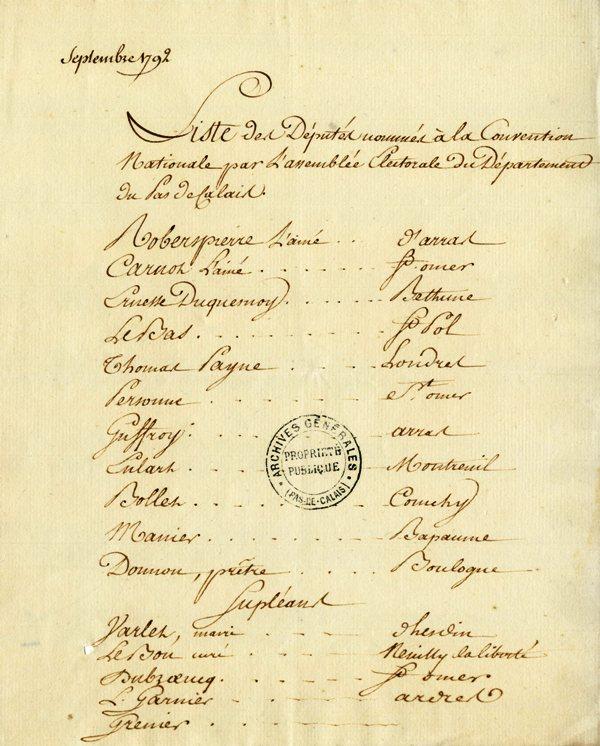 Septembre 1792
Liste des Députés nommés à la Convention
Nationale par L'assemblée Electorale du Département
du Pas de Calais.
Roberspierre L'ainé . . d'arras
Carnot L'ainé . . . . . . . St omer
Ernesse Duquesnoy . . . . . . Bethune
Le Bas . . . . . . . . St Pol
Thomas Payne . . . . . Londres
Personne . . . . . . St omer
Guffroy . . . . . arras
Lulart . . . . . Montreuil
Bollet . . . . . Couchy
Manier . . . . . . Bapaume
Dounou, prêtre . . . . Boulogne
ARCHIVES GÉNÉRALES
PROPRIÉTÉ
PUBLIQUE
(PAS-DE-CALAIS)
Supléans
Varlet, maire . . . . d'hesdin
Le Bon curé . . . . Neuilly la liberté
Dubrœucq . . . . . St omer
L. Garnier . . . . . ardres
Grenier . . . . .